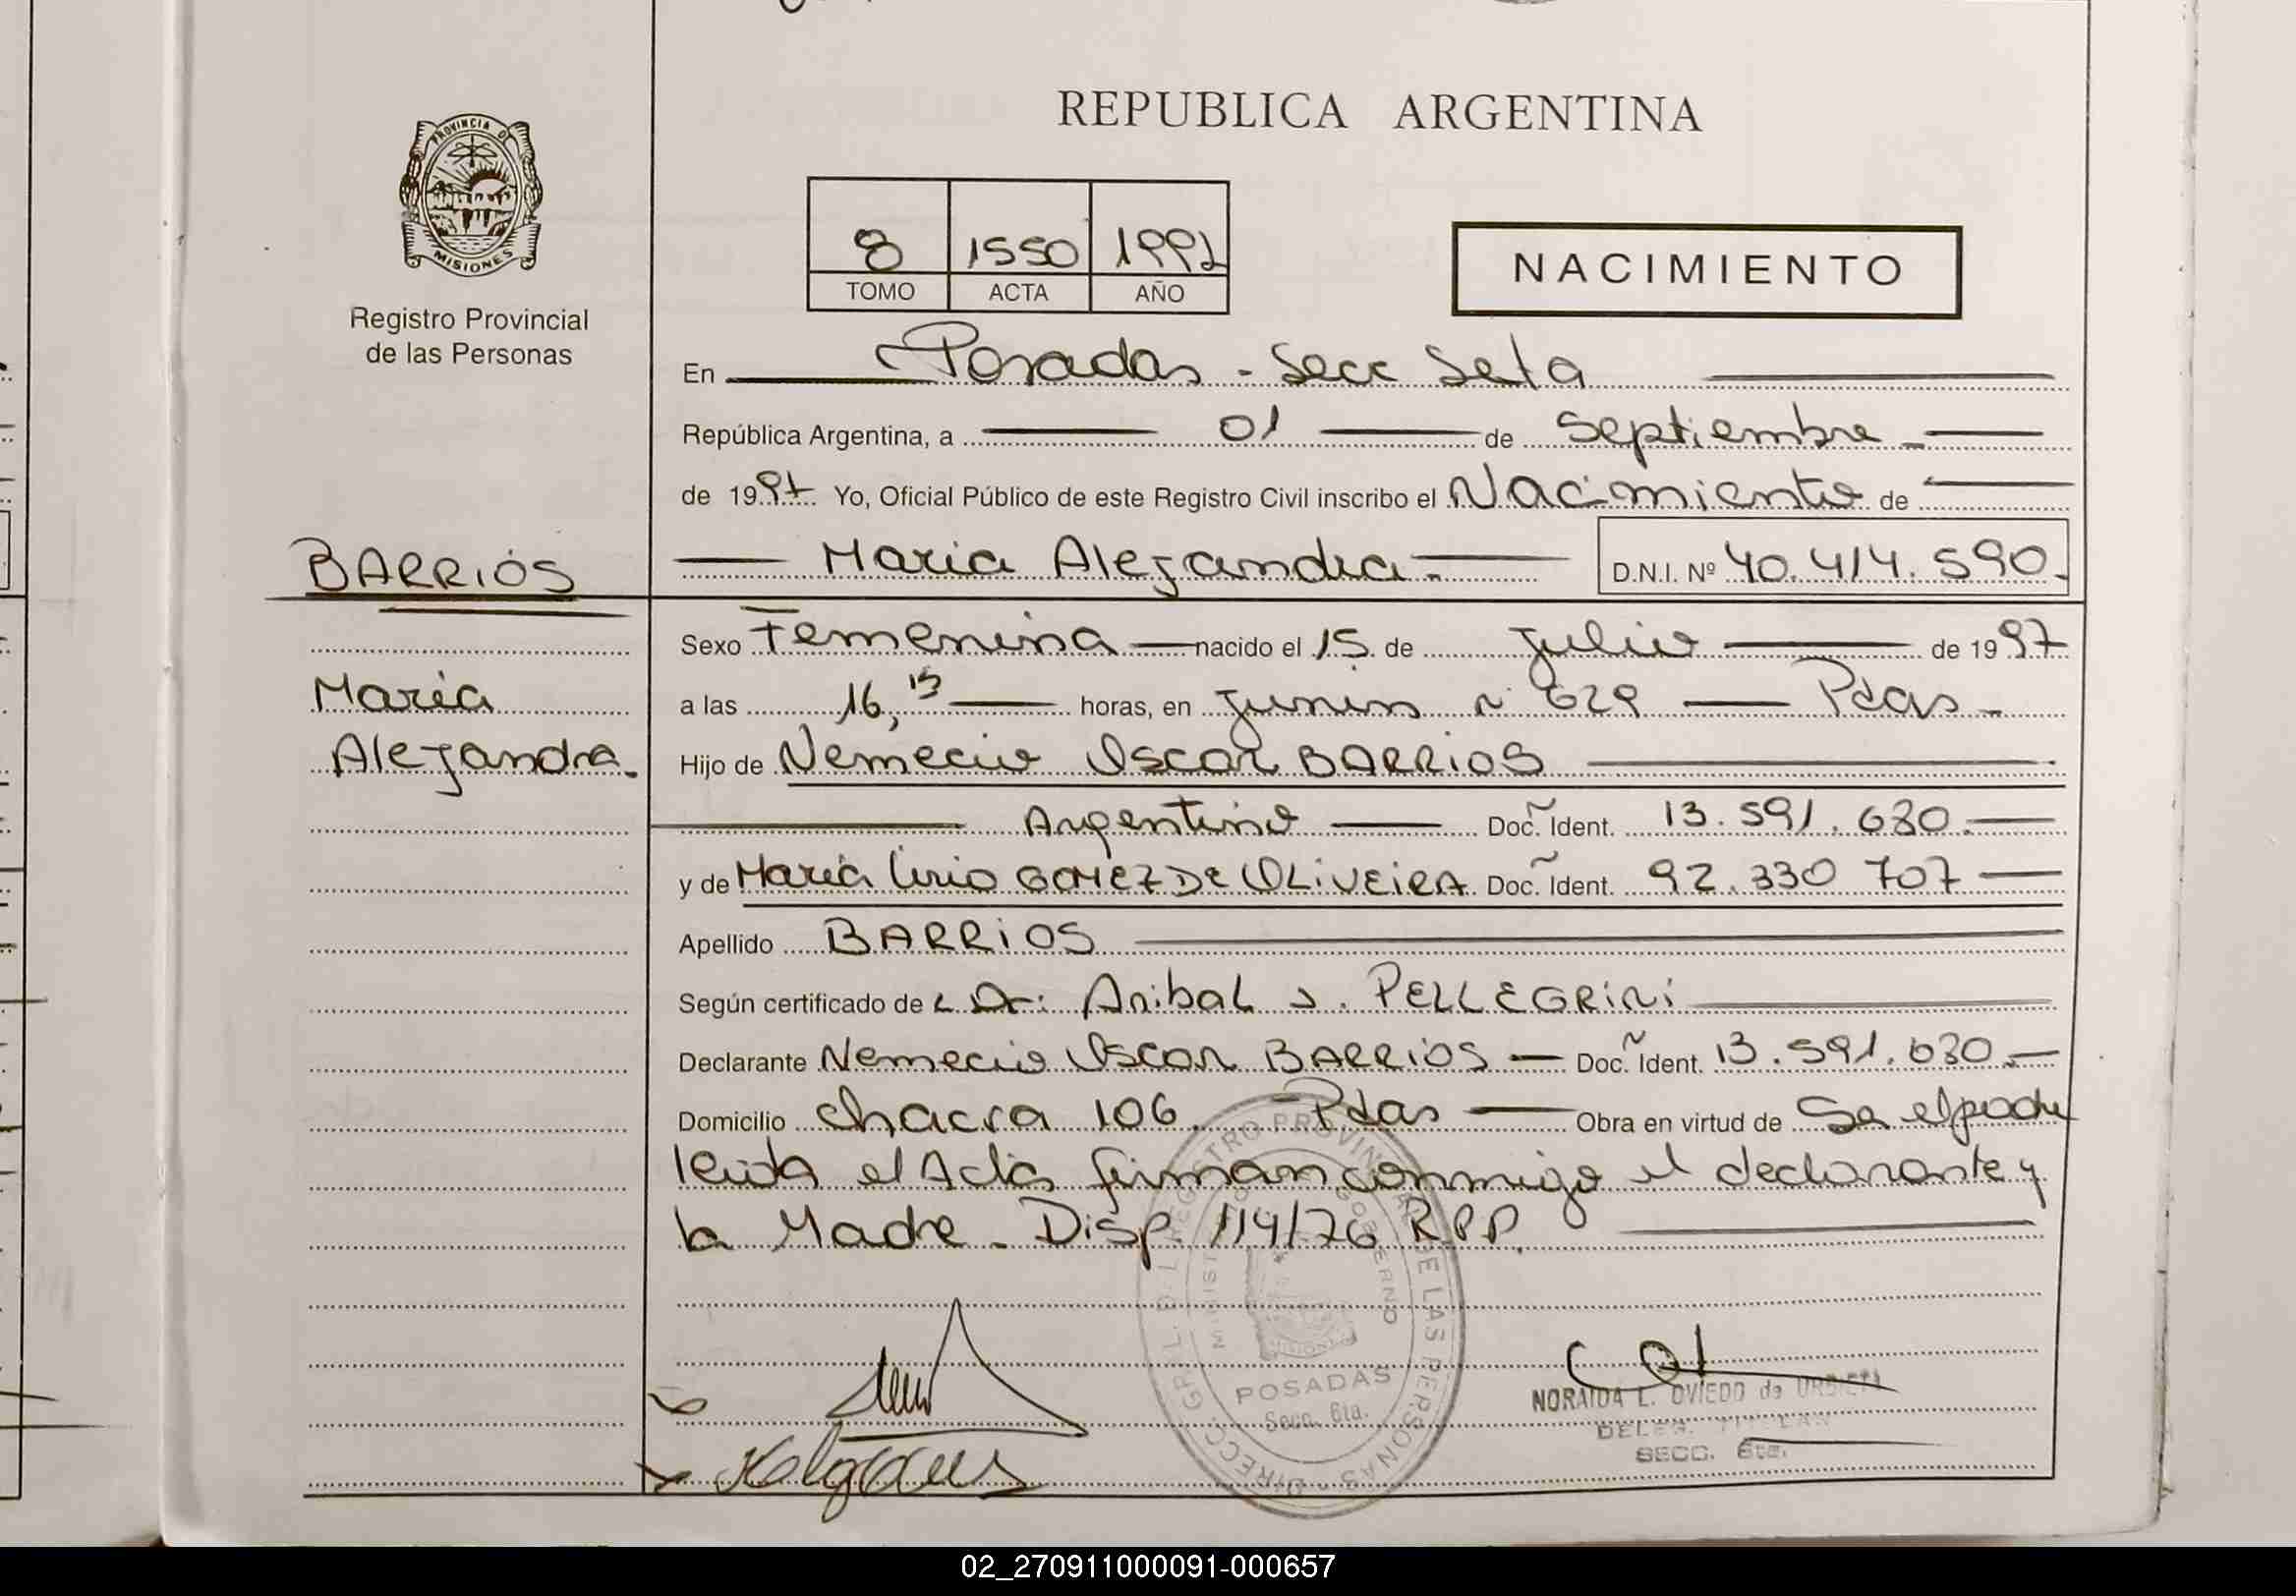 REPUBLICA ARGENTINA
PROVINCIA DE
MISIONES
Registro Provincial
de las Personas
8 1550 1997
TOMO ACTA AÑO
NACIMIENTO
En Posadas - Secc Sexta
República Argentina, a 01 de Septiembre
de 1997 Yo, Oficial Público de este Registro Civil inscribo el Nacimiento de
BARRIOS
Maria Alejandra.
D.N.I. Nº 40.414.590.
Maria
Alejandra.
Sexo Femenina nacido el 15 de julio de 1997
a las 16,15 horas, en Junin n 629 Pdas.
Hijo de Nemecio Oscar BARRIOS
Argentino Doc. Ident. 13.591.630.
y de Maria GOMEZ DE OLIVEIRA Doc. Ident. 92.330 707
Apellido BARRIOS
Según certificado de Dr: Anibal J. PELLEGRINI
Declarante Nemecio Oscar BARRIOS Doc. Ident. 13.591.630.
Domicilio chacra 106. Pdas Obra en virtud de Se el padre
leida el Acta firman conmigo el declarante y
la Madre. Disp. 114/76 RPP.
DIRECC. GRAL. DEL REGISTRO PROVINCIAL DE LAS PERSONAS
GOBIERNO
POSADAS
Secc. 6ta.
NORAIDA L. OVIEDO de URBIETA
DELEG. TITULAR
SECC. 6ta.
02_270911000091-000657